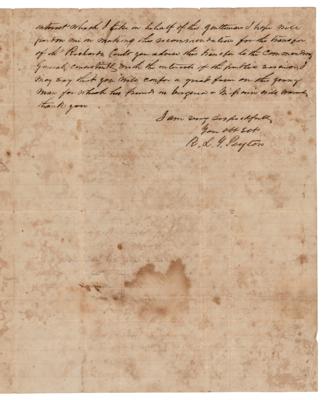 interest which I feel in behalf of this Gentleman I hope will
pardon me in making this recommendation for the transfer
of Mr Richards. Could you advise this transfer to the Commanding
General, consistently with the interests of the public service, I
may say that you will confer a great favor on this young
man for which his friends in Virginia & Missouri will
thank you
I am very respectfully
Your obt Svt
R. L. Y. Peyton